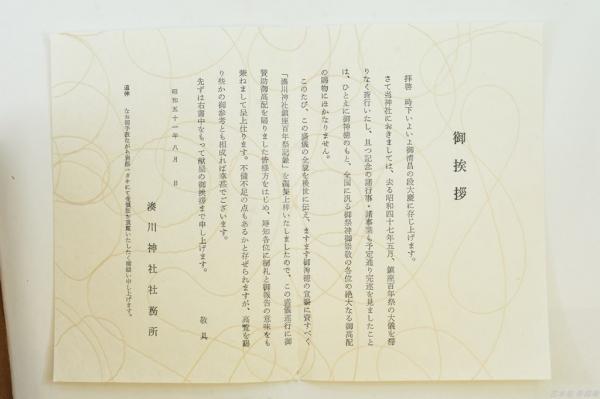 御挨拶
拝啓 時下いよいよ御清昌の段大慶に存じ上げます。
さて当神社におきましては、去る昭和四十七年五月、鎮座百年祭の大儀を滞
りなく斎行いたし、且つ記念の諸行事・諸事業も予定通り完遂を見ましたこと
は、ひとえに御神徳のもと、全国に汎る御祭神御崇敬の各位の絶大なる御高配
の賜物にほかなりません。
このたび、この盛儀の全貌を後世に伝え、ますます御神徳の宣揚に資すべく
「湊川神社鎮座百年祭記録」を編纂上梓いたしましたので、この盛儀斎行に御
賛助御高配を賜りました皆様方をはじめ、辱知各位に御礼と御報告の意味をも
兼ねまして呈上仕ります。不備不足の点もあるかと存ぜられますが、高覧を賜
り些かの御参考とも相成れば幸甚でございます。
先ずは右書中をもって献呈の御挨拶まで申し上げます。
敬具
昭和五十一年八月 日
湊川神社社務所
追伸 なお御手数ながら別添ハガキにて受領証を頂戴いたしたく御願い申し上げます。